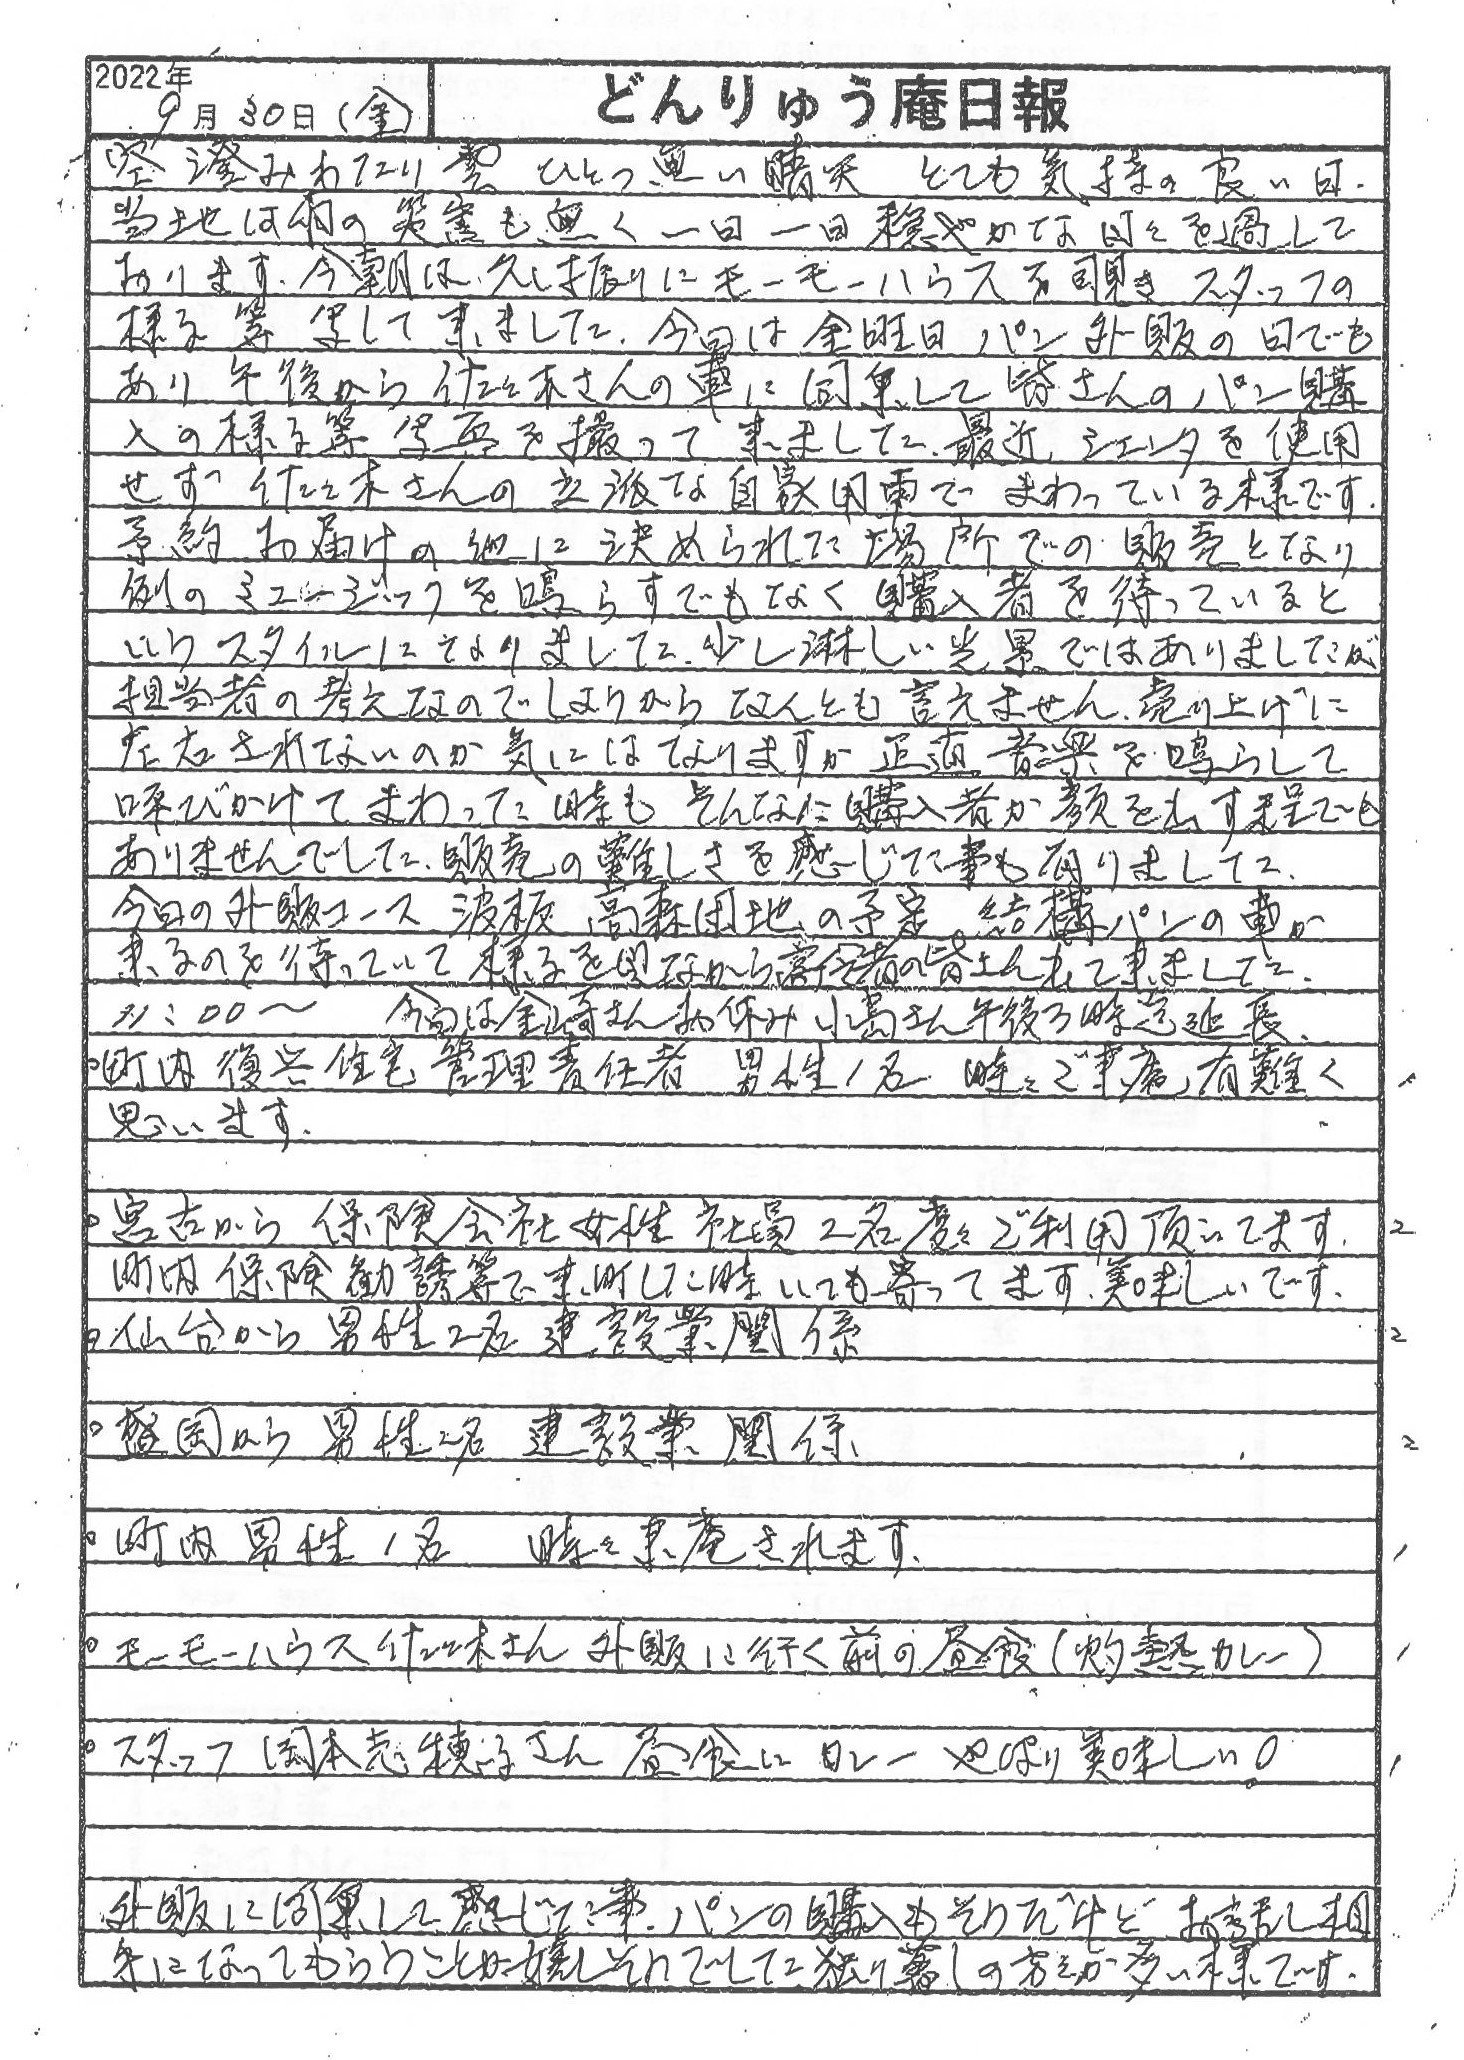 2022年
9月30日(金)
どんりゅう庵日報
空澄みわたり雲ひとつ無い晴天 とても気持の良い日.
当地は雨の災害も無く一日一日穏やかな日々を過して
おります.今朝は、久し振りにモーモーハウスを覗きスタッフの
様子等 写して来ました.今日は金曜日パン外販の日でも
あり 午後から佐々木さんの車に同乗して皆さんのパン購
入の様子等写真を撮って来ました.最近,シエンタを使用
せず 佐々木さんの立派な自家用車でまわっている様です.
予約お届けの他に決められた場所での販売となり
例のミュージックを鳴らすでもなく購入者を待っていると
いうスタイルになりました.少し淋しい光景ではありましたが
担当者の考えなのでしょうからなんとも言えません.売り上げに
左右されないのか気にはなりますが正直音楽を鳴らして
呼びかけてまわった時も そんなに購入者が顔を出す程でも
ありませんでした.販売の難しさを感じた事も有りました.
今日の外販コース 波板 高森団地の予定 結構パンの車が
来るのを待っていて様子を見ながら高令者の皆さん出て来ました.
11:00〜 今日は金崎さんお休み 小高さん午後3時迄延長.
○町内復興住宅管理責任者 男性1名 時々ご来庵,有難く 1
思います.
○宮古から 保険会社女性社員2名度々ご利用頂いてます. 2
町内保険勧誘等で来町した時いつも寄ってます.美味しいです.
○仙台から 男性2名 建設業関係 2
○盛岡から 男性2名 建設業関係 2
○町内男性1名 時々来庵されます. 1
○モーモーハウス佐々木さん 外販に行く前の昼食(灼熱カレー) 1
○スタッフ 岡本志穂子さん 昼食にカレー やはり美味しい! 1
外販に同乗して感じた事.パンの購入もそうだけど お話し相
手になってもらうことが嬉しそうでした.独り暮しの方々が多い様です.